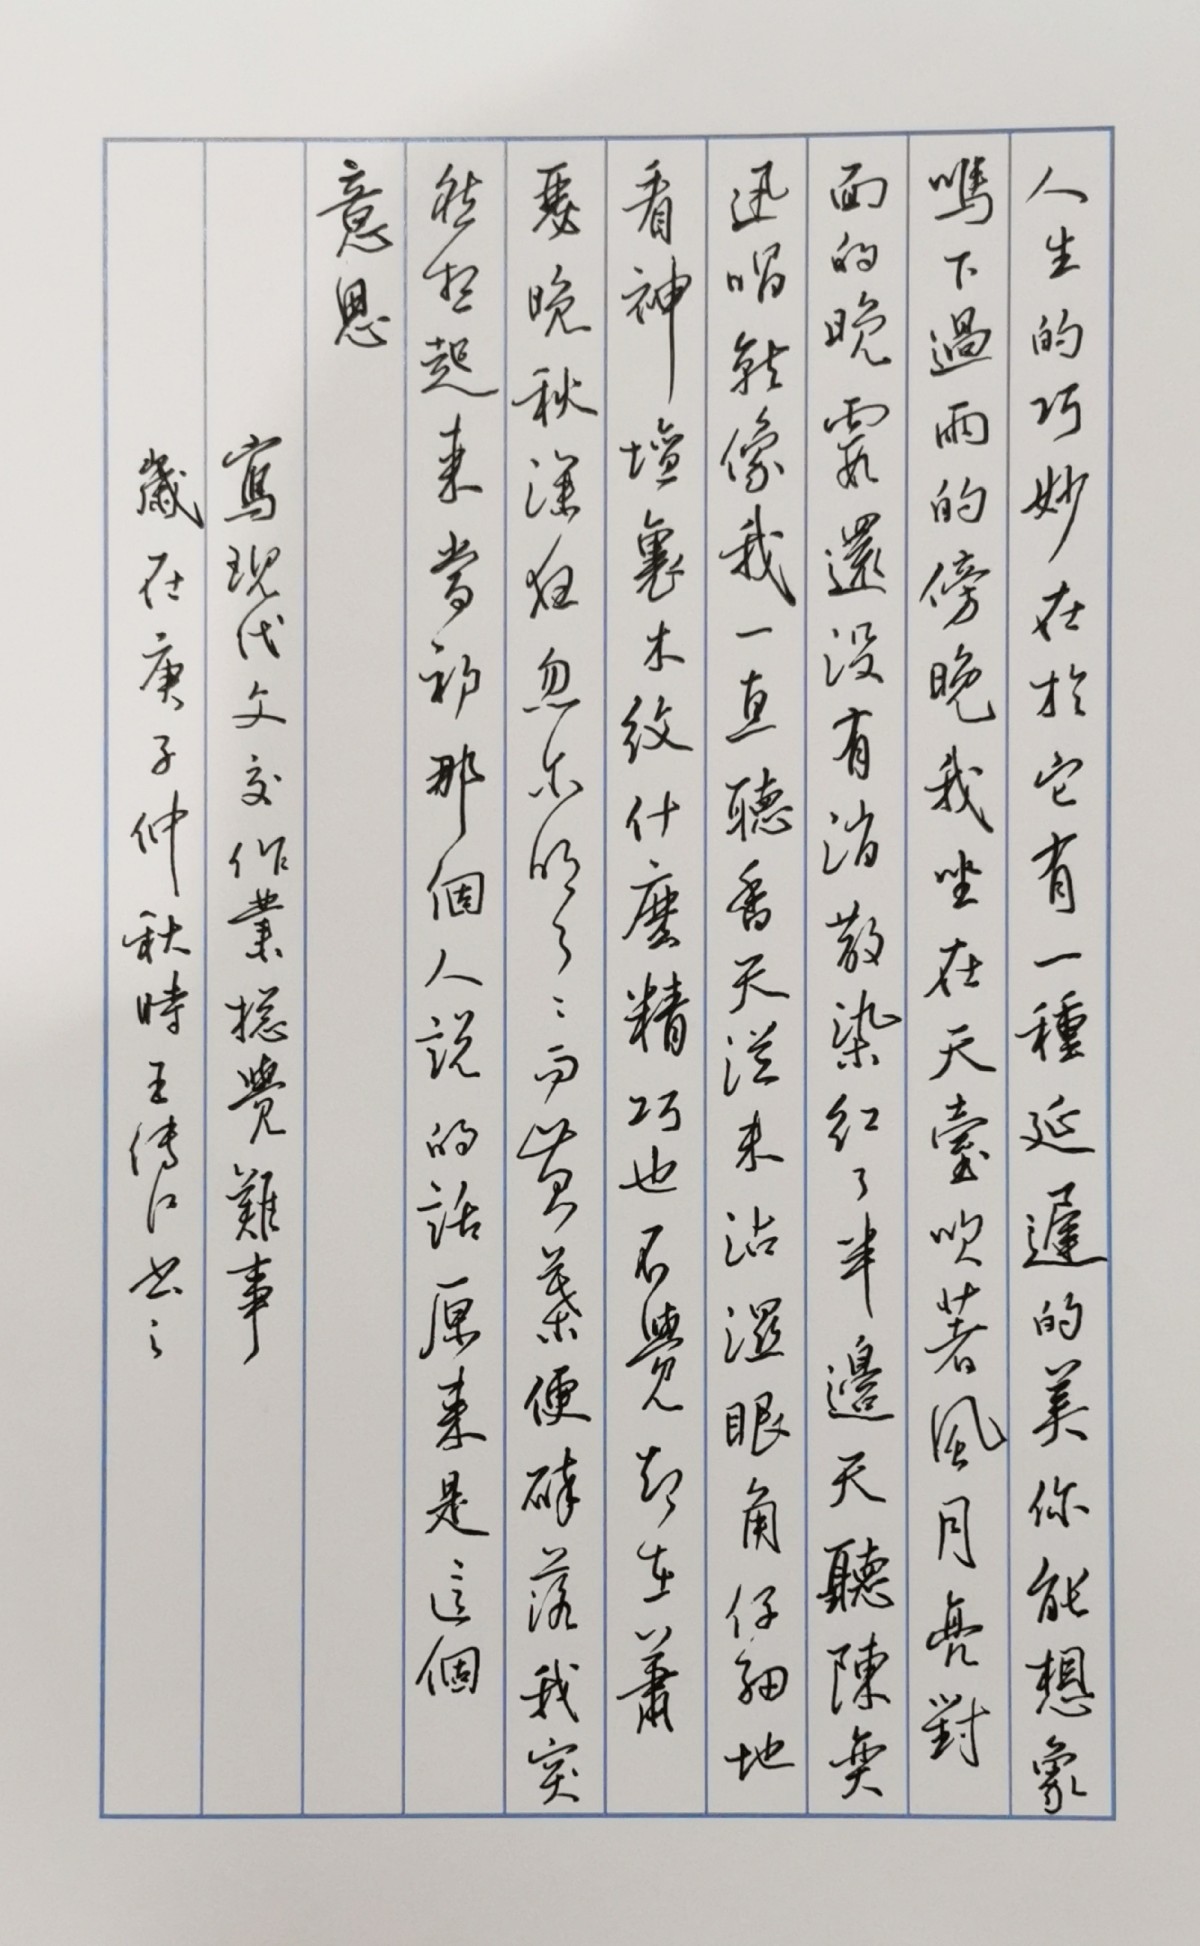 人生的巧妙在於它有一種延遲的美你能想象
嗎下過雨的傍晚我坐在天臺吹著風月亮對
面的晚霞還没有消散染紅了半邊天聽陳奕
迅唱就像我一直聽香天從未沾濕眼角仔細地
看神壇裏木紋什麼精巧也不覺却在蕭
瑟晚秋深夜忽尔明了了而黄葉便碎落我突
然想起來當初那個人説的話原來是這個
意思
寫現代文交作業總覺難事
歲在庚子仲秋時王傳江书之